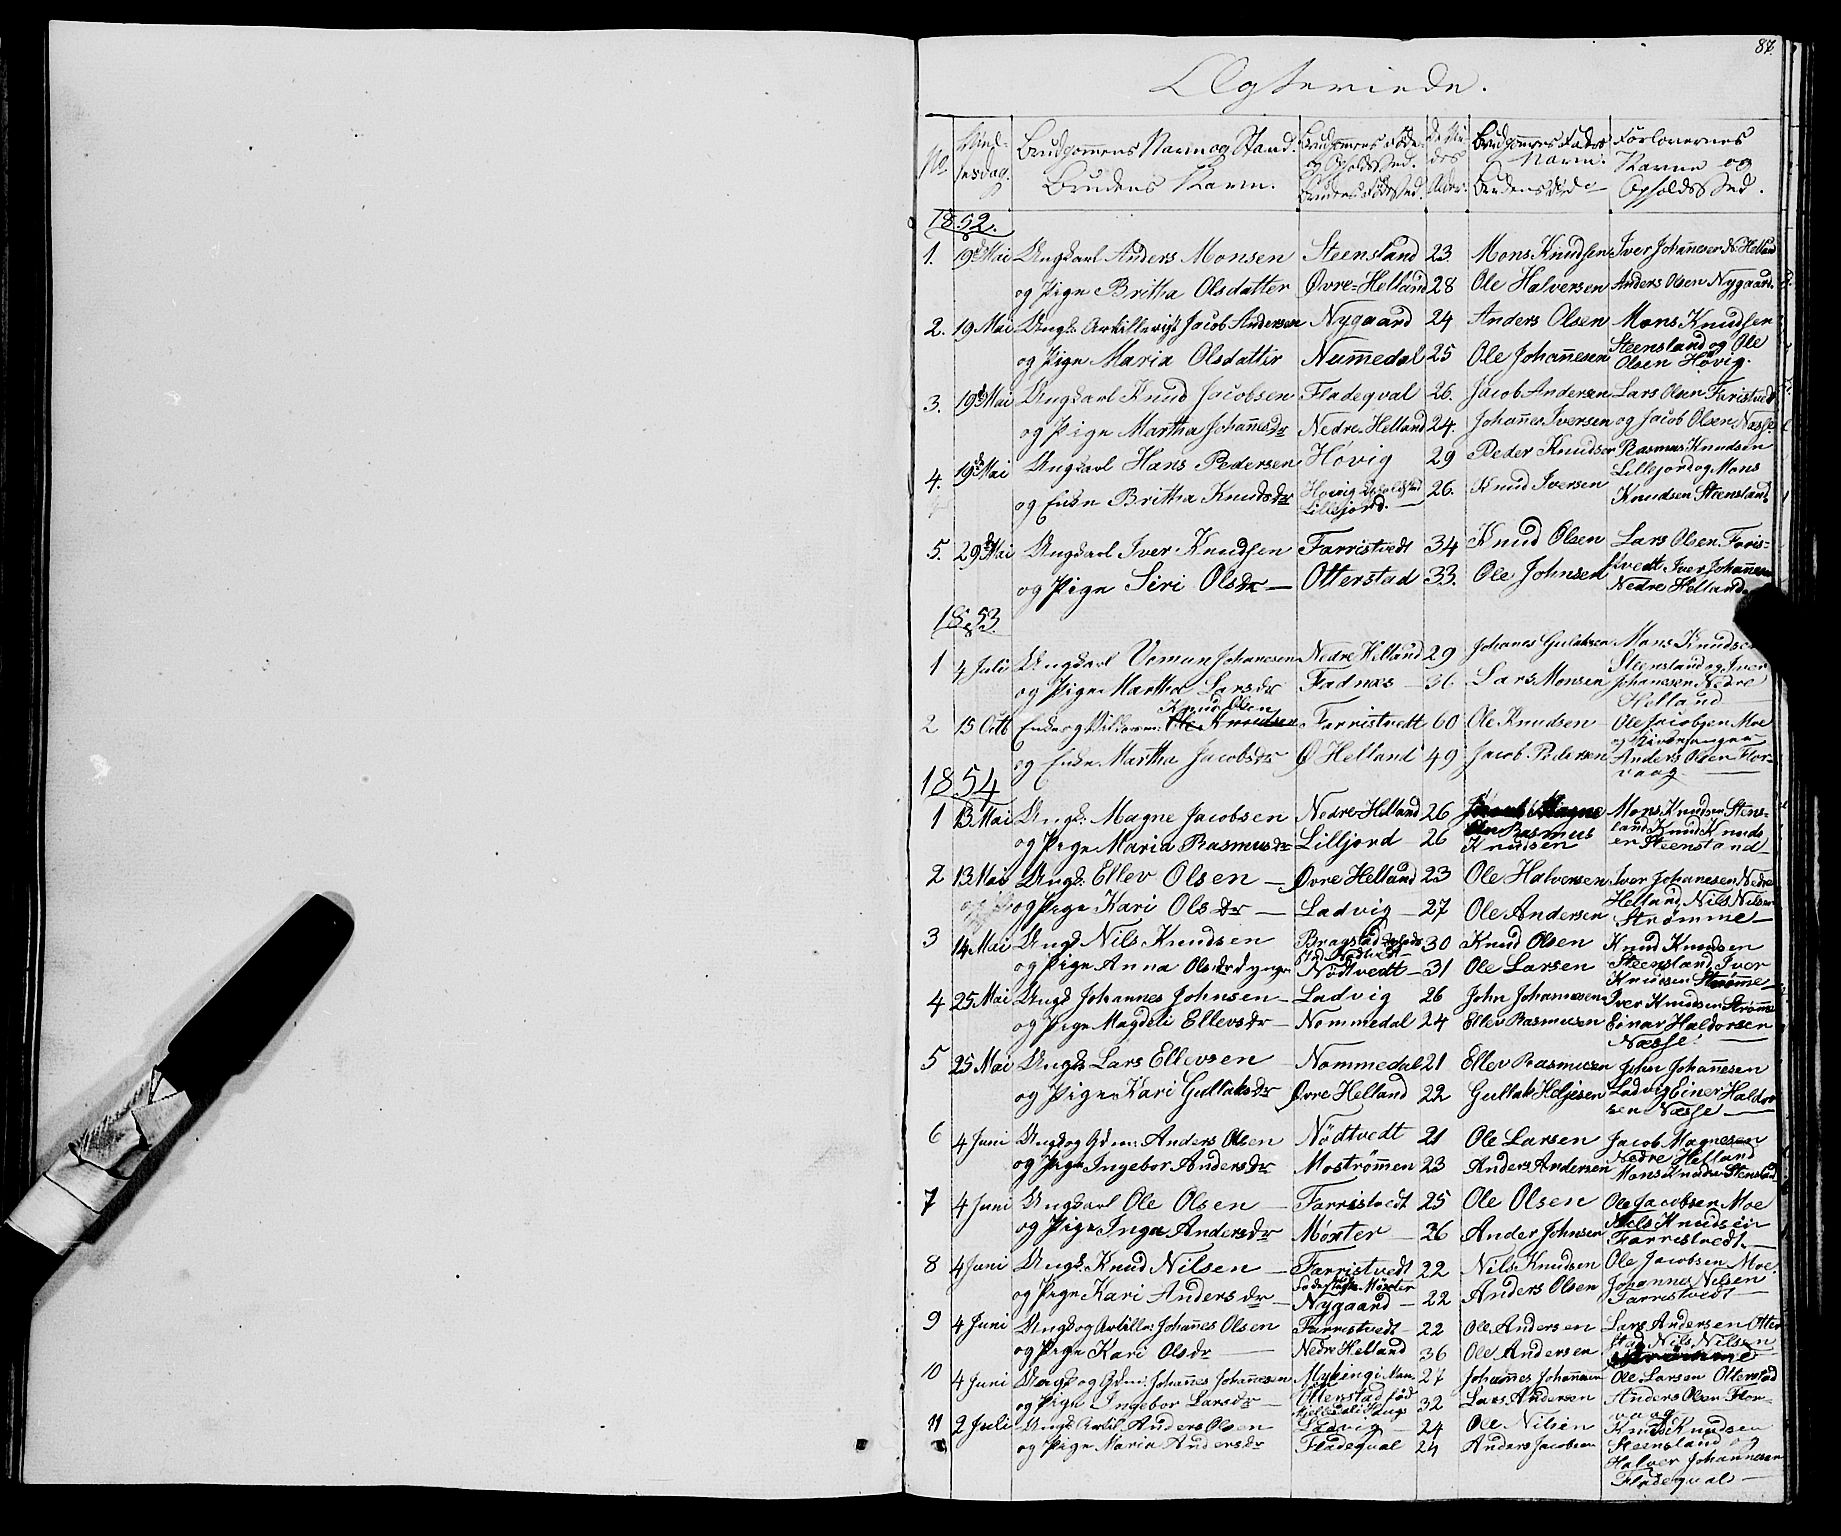 87.
Ægteviede.
No. Brudgommens Navn og Stand. Brudgommens Føde- og Opholdssted. Alder. Brudgommens Faders Navn. Forlovernes
Brudens Navn. Brudens Fødested. Brudens do Navne og Opholdssted.
1852.
1. 9de Mai Ungkarl Anders Monsen Steensland 23. Mons Knudsen Iver Johannesen N. Helland
og Pige Britha Olsdatter Øvre-Helland 28 Ole Halversen Anders Olsen Nygaard.
2. 19 Mai Ungk: Artillerist Jacob Andersen Nygaard 24 Anders Olsen Mons Knudsen
og Pige Maria Olsdatter Nummedal 25 Ole Johannesen Steensland og Ole
Olsen Høvig.
3. 19de Mai Ungkarl Knud Jacobsen Fladeqval 26. Jacob Andersen Lars Olsen Faristvedt
og Pige Martha Johansdr Nedre-Helland 24. Johannes Iversen og Jacob Olsen Næsse
4. 19de Mai Ungkarl Hans Pedersen Høvig 29 Peder Knudsen Rasmus Knudsen
Lillejord og Mons
og Enke Britha Knudsdr Høvig Opholdsted 26. Knud Iversen Knudsen Steensland
Lillejord.
5. 29de Mai Ungkarl Iver Knudsen Farristvedt 34 Knud Olsen Lars Olsen Faris-
og Pige Siri Olsdr — Otterstad 33. Ole Johnsen tvedt Iver Johannesen
Nedre Helland
1853
1 4 Juli Ungkarl Vemun Johanesen Nedre Helland 29 Johanes Gulaksen Mons Knudsen
Steensland og Iver
og Pige Martha Larsdr Fadnæs — 36 Lars Monsen Johanesen Nedre
Helland
Knud Olsen
2 15 Octb Enkeog Ole Knudsen Farristvedt 60 Ole Knudsen Ole Jacobsen Moe
og Kirkesanger
og Enke Martha Jacobsdr Ø Helland 49 Jacob Pedersen Anders Olsen Flor-
vaag —
1854
1 13 Mai Ungk: Magne Jacobsen Nedre Helland 26 Mons Knudsen Stens-
land Knud Knuds
og Pige Maria Rasmusdr Lilljord — 26 Rasmus Knudsen en Steensland
2 13 Mai Ungk: Ellev Olsen — Øvre Helland 23 Ole Halversen Iver Johanesen Nedre
Helland Nils Nilsen
og Pige Kari Olsdr — Ladvig — 27 Ole Andersen Strømme —
3 14 Mai Ungk Nils Knudsen Bragstad Opholds 30 Knud Olsen Knud Knudsen
sted Nødtvedt
og Pige Anna Olsdr d yngre Nødtvedt — 31 Ole Larsen Steensland Iver
Knudsen Strømme
4 25 Mai Ungk Johannes Johnsen — Ladvig 26 John Johannesen Iver Knudsen Strømme
og Pige Magdeli Ellevsdr — Nommedal 24 Ellev Rasmusen Einar Haldorsen
Næsse —
5 25 Mai Ungk Lars Ellevsen — Nommedal 21 Ellev Rasmusen John Johannesen
og Pige Kari Gullaksdr Øvre Helland 22 Gullak Heljesen Ladvig Einer Haldor
sen Næsse —
6 4 Juni Ungkog Gdm: Anders Olsen Nødtvedt 21 Ole Larsen Jacob Magnesen
Nedre Helland
og Pige Ingebor Andersdr Mostrømmen 23 Anders Andersen Mons Knudsen Stensland
7 4 Juni Ungkarl Ole Olsen — Farristvedt 25 Ole Olsen Ole Jacobsen Moe
Nils Knudsen
og Pige Inga Andersdr Mørter — 36 Ander Johnsen Farristvedt —
8 4 Juni Ungk: Knud Nilsen — Farristvedt 22 Nils Knudsen Ole Jacobsen Moe
og Pige Kari Andersdr — Mørter Nygaard — 22 Anders Olsen Johannes Nilsen
Farristvedt —
9 4 Juni Ungkog Artille: Johannes Olsen Farristvedt — 22 Ole Andersen Lars Andersen Otter
stad Nils Nilsen
og Pige Kari Olsdr — Nedre Helland 36 Ole Andersen Strømme
10 4 Juni Ungk og Gdm: Johannes Johannesen Myking i Man. 27 Johannes Johannesen Ole Larsen Otterstad
og Pige Ingebor Larsdr — Otterstad fød 32 Lars Andersen Anders Olsen Flor-
vaag
11 2 Juli Ungk Artil. Anders Olsen Ladvig — 24 Ole Nilsen Knud Knudsen
og Pige Maria Andersdr Fladeqval 24 Anders Jacobsen Steensland og
Halver Johannesen
Fladeqval —